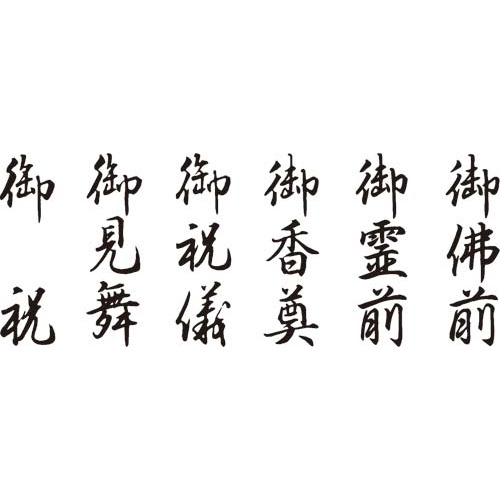 御佛前
御霊前
御香奠
御祝儀
御見舞
御祝